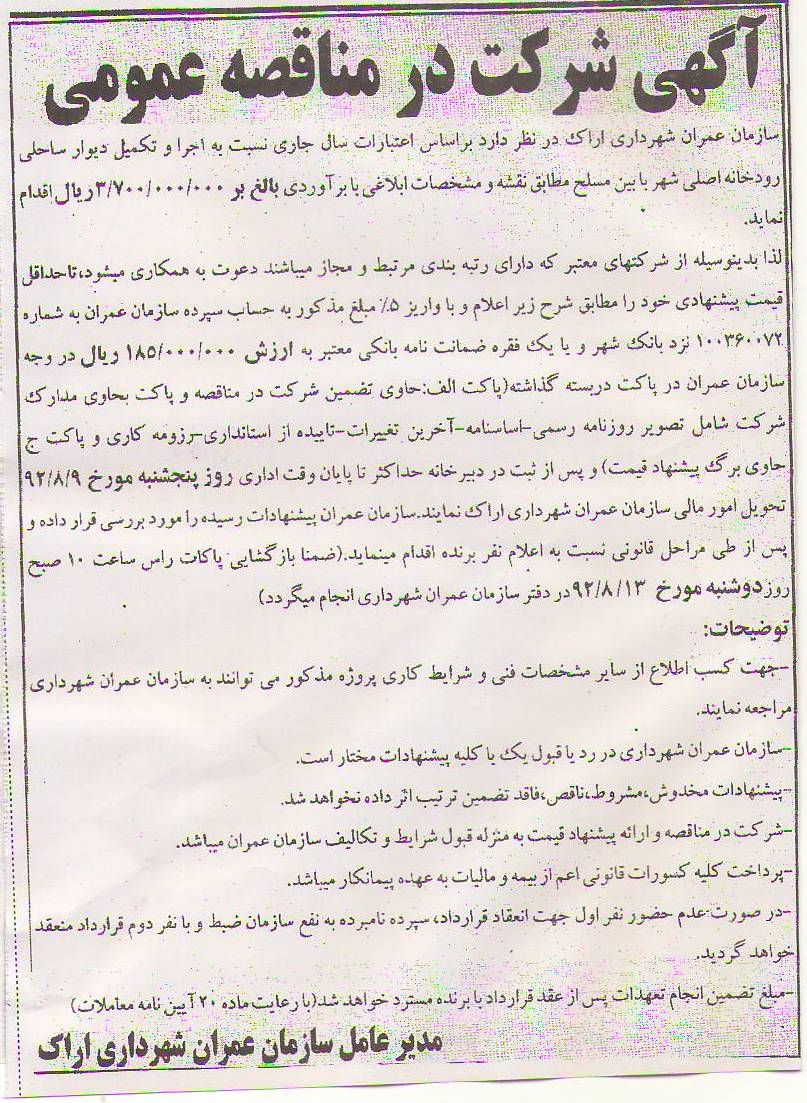 آگهی شرکت در مناقصه عمومی
سازمان عمران شهرداری اراک در نظر دارد براساس اعتبارات سال جاری نسبت به اجرا و تکمیل دیوار ساحلی
رودخانه اصلی شهر با بتن مسلح مطابق نقشه و مشخصات ابلاغی با برآوردی بالغ بر ۳/۷۰۰/۰۰۰/۰۰۰ ریال اقدام
نماید.
لذا بدینوسیله از شرکتهای معتبر که دارای رتبه بندی مرتبط و مجاز میباشند دعوت به همکاری میشود،تا حداقل
قیمت پیشنهادی خود را مطابق شرح زیر اعلام و با واریز ۵٪ مبلغ مذکور به حساب سپرده سازمان عمران به شماره
۱۰۰۳۶۰۰۷۲ نزد بانک شهر و یا یک فقره ضمانت نامه بانکی معتبر به ارزش ۱۸۵/۰۰۰/۰۰۰ ریال در وجه
سازمان عمران در پاکت دربسته گذاشته(پاکت الف:حاوی تضمین شرکت در مناقصه و پاکت ب حاوی مدارک
شرکت شامل تصویر روزنامه رسمی-اساسنامه-آخرین تغییرات-تاییده از استانداری-رزومه کاری و پاکت ج
حاوی برگ پیشنهاد قیمت) و پس از ثبت در دبیرخانه حداکثر تا پایان وقت اداری روز پنجشنبه مورخ ۹۲/۸/۹
تحویل امور مالی سازمان عمران شهرداری اراک نمایند.سازمان عمران پیشنهادات رسیده را مورد بررسی قرار داده و
پس از طی مراحل قانونی نسبت به اعلام نفر برنده اقدام مینماید.(ضمنا بازگشایی پاکات راس ساعت ۱۰ صبح
روز دوشنبه مورخ ۹۲/۸/۱۳ در دفتر سازمان عمران شهرداری انجام میگردد)
توضیحات:
-جهت کسب اطلاع از سایر مشخصات فنی و شرایط کاری پروژه مذکور می توانند به سازمان عمران شهرداری
مراجعه نمایند.
-سازمان عمران شهرداری در رد یا قبول یک یا کلیه پیشنهادات مختار است.
-پیشنهادات مخدوش،مشروط،ناقص،فاقد تضمین ترتیب اثر داده نخواهد شد.
-شرکت در مناقصه و ارائه پیشنهاد قیمت به منزله قبول شرایط و تکالیف سازمان عمران میباشد.
-پرداخت کلیه کسورات قانونی اعم از بیمه و مالیات به عهده پیمانکار میباشد.
-در صورت عدم حضور نفر اول جهت انعقاد قرارداد، سپرده نامبرده به نفع سازمان ضبط و با نفر دوم قرارداد منعقد
خواهد گردید.
-مبلغ تضمین انجام تعهدات پس از عقد قرارداد با برنده مسترد خواهد شد(با رعایت ماده ۲۰ آیین نامه معاملات)
مدیر عامل سازمان عمران شهرداری اراک